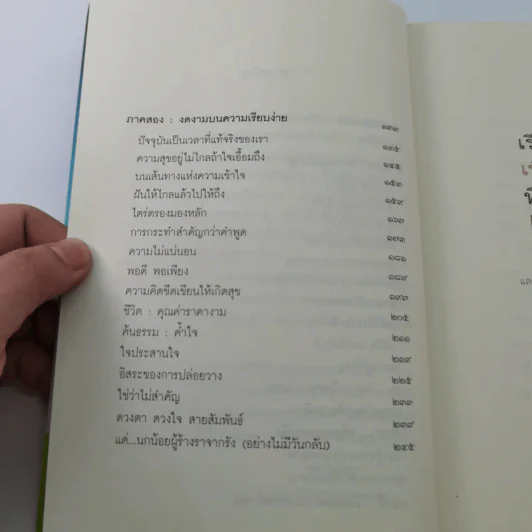 ภาคสอง : งดงามบนความเรียบง่าย ๑๓๓
ปัจจุบันเป็นเวลาที่แท้จริงของเรา ๑๓๕
ความสุขอยู่ไม่ไกลถ้าใจเอื้อมถึง ๑๔๕
บนเส้นทางแห่งความเข้าใจ ๑๕๓
ฝันให้ไกลแล้วไปให้ถึง ๑๕๙
ไตร่ตรองมองหลัก ๑๖๗
การกระทำสำคัญกว่าคำพูด ๑๗๓
ความไม่แน่นอน ๑๘๑
พอดี พอเพียง ๑๘๙
ความคิดขีดเขียนให้เกิดสุข ๑๙๗
ชีวิต : คุณค่าราคางาม ๒๐๕
ค้นธรรม : ค้ำใจ ๒๑๑
ใจประสานใจ ๒๑๙
อิสระของการปล่อยวาง ๒๒๕
ใช่ว่าไม่สำคัญ ๒๓๓
ดวงตา ดวงใจ สายสัมพันธ์ ๒๓๙
แด่...นกน้อยผู้ร้างราจากรัง (อย่างไม่มีวันกลับ) ๒๔๕